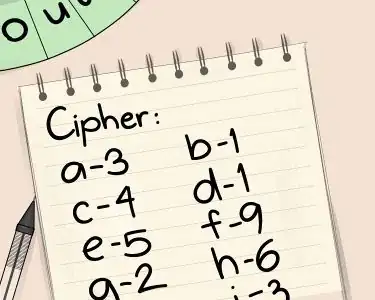 o u
Cipher:
a-3 b-1
c-4 d-1
e-5 f-9
g-2 h-6